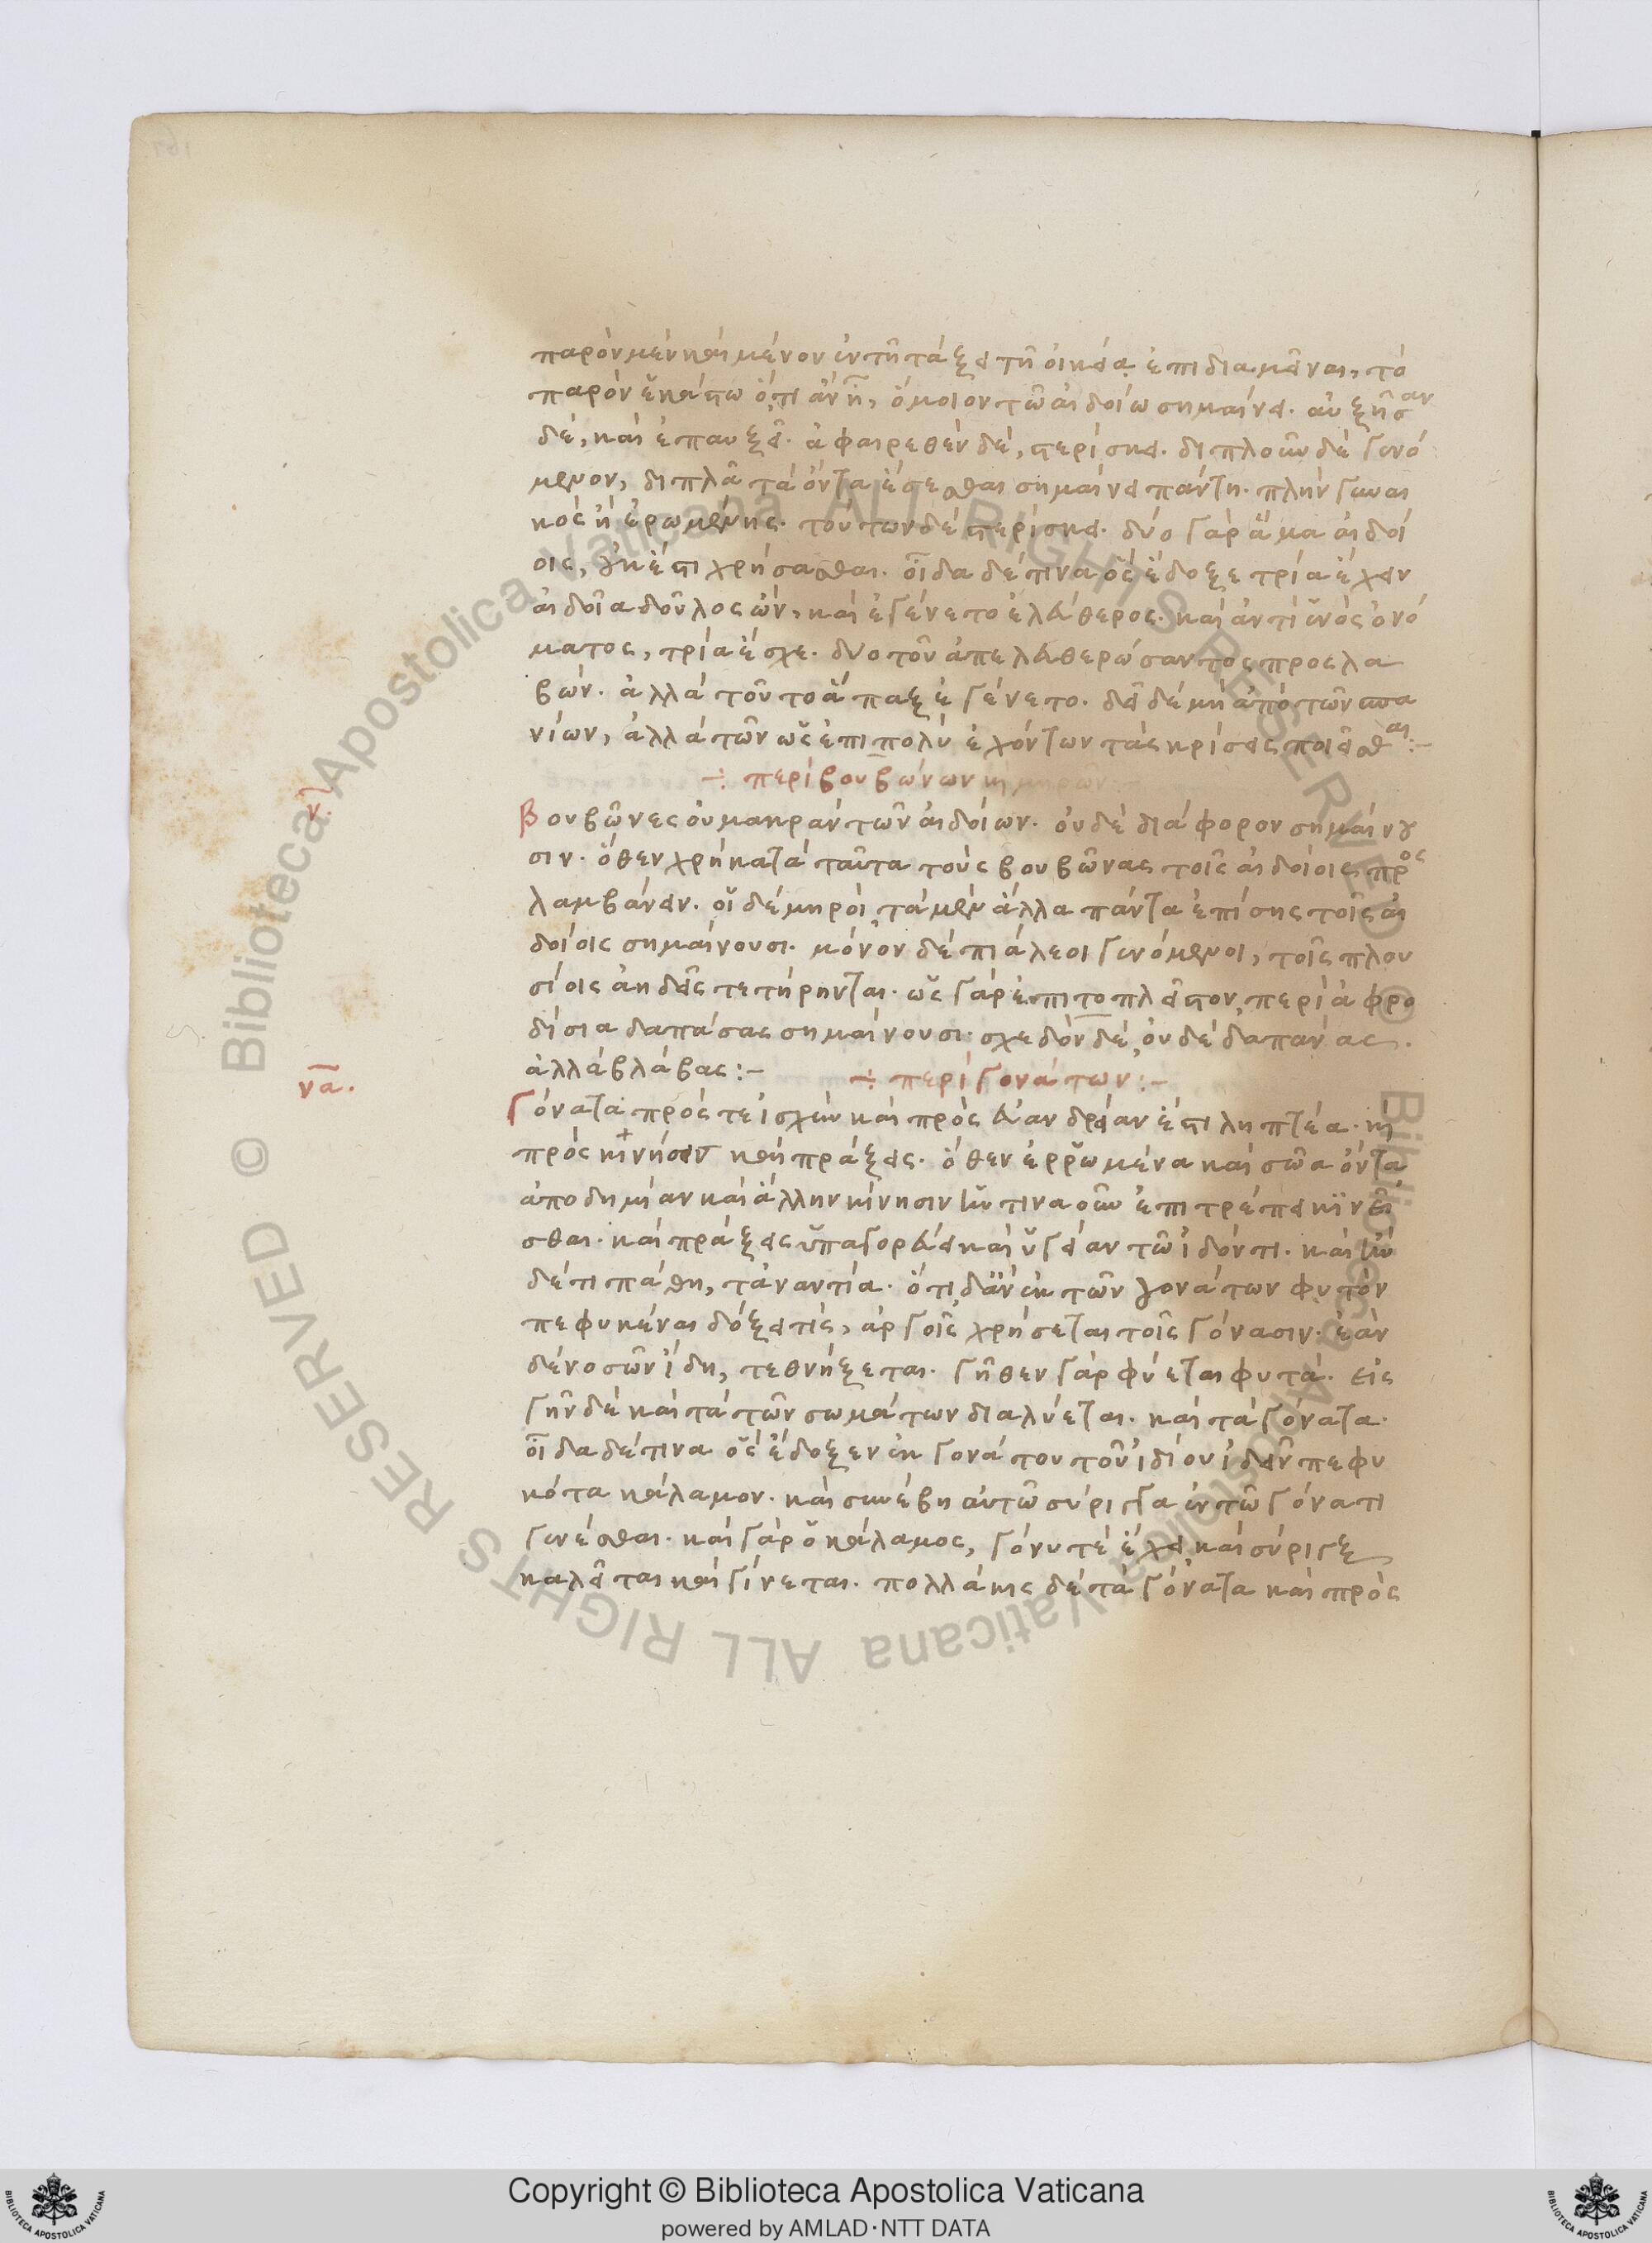 παρὸν μὲν καὶ μένον ἐν τῇ τάξει τῇ οἰκείᾳ ἐπιδιαμεῖναι, τὸ
παρὸν ἑκάστω ὅ,τι ἂν ᾖ, ὅμοιον τῶ αἰδοίω σημαίνει. αὐξῆσαν
δέ, καὶ ἐπαυξεῖ. ἀφαιρεθὲν δέ, στερίσκει. διπλοῦν δὲ γινό
μενον, διπλᾶ τὰ ὄντα ἔσεσθαι σημαίνει πάντη. πλὴν γυναι
κὸς ἢ ἐρωμένης. τούτων δὲ στερίσκει. δύο γὰρ ἅμα αἰδοί
οις, οὐκ ἔστι χρήσασθαι. οἶδα δέ τινα ὃς ἔδοξε τρία ἔχειν
αἰδοῖα δοῦλος ὤν, καὶ ἐγένετο ἐλεύθερος. καὶ ἀντὶ ἑνὸς ὀνό
ματος, τρία ἔσχε. δυο τοῦ ἀπελευθερώσαντος προσλα
βών. ἀλλὰ τοῦτο ἅπαξ ἐγένετο. δεῖ δὲ μὴ ἀπὸ τῶν σπα
νίων, ἀλλὰ τῶν ὡς ἐπιπολὺ ἐχόντων τὰς κρίσεις ποιεῖσθαι:-
÷ περὶ βουβώνων κ μηρῶν:-
ν.
Βουβῶνες οὐ μακρὰν τῶν αἰδοίων. οὐδὲ διάφορον σημαίνου
σιν. ὅθεν χρὴ κατὰ ταῦτα τοὺς βουβῶνας τοῖς αἰδοίοις προς
λαμβάνειν. οἱ δὲ μηροί, τὰ μὲν ἄλλα πάντα ἐπίσης τοῖς αἰ
δοίοις σημαίνουσι. μόνον δὲ πιάλεοι γινόμενοι, τοῖς πλου
σίοις ἀηδεῖς τετήρηνται. ὡς γὰρ ἐπιτοπλεῖστον, περὶ ἀφρο
δίσια δαπάσας σημαίνουσι. σχεδὸν δέ, οὐδὲ δαπάνας.
ἀλλὰ βλάβας:- ÷ περὶ γονάτων:-
να.
Γόνατα πρός τε ἰσχὺν καὶ πρὸς εὐανδρείαν ἐστι ληπτέα. κ
πρὸς κινήσειν καὶ πράξεις. ὅθεν ἐρρωμένα καὶ σῶα ὄντα
ἀποδημίαν καὶ ἄλλην κίνησιν ἥν τινα οὖν ἐπιτρέπει κινεῖ
σθαι. καὶ πράξεις ὑπαγορεύει καὶ ὑγείαν τῶ ἰδόντι. καὶ ἢν
δέ τι πάθη, τἀναντία. ὅτι δἂν ἐκ τῶν γονάτων φυτὸν
πεφυκέναι δόξει τίς, ἀργοῖς χρήσεται τοῖς γόνασιν. ἐὰν
δὲ νοσῶν ἴδη, τεθνήξεται. γῆθεν γὰρ φύεται φυτά. εἰς
γῆν δὲ καὶ τὰ τῶν σωμάτων διαλύεται. καὶ τὰ γόνατα.
οἶδα δέ τινα ὃς ἔδοξεν ἐκ γονάτου τοῦ ἰδίου ἰδεῖν πεφυ
κότα κάλαμον. καὶ συνέβη αὐτῶ σύριγγα ἐν τῶ γόνατι
γινέσθαι. καὶ γὰρ ὁ κάλαμος, γόνυ τὲ ἔχει καὶ σύριγξ
καλεῖται καὶ γίνεται. πολλάκις δὲ τὰ γόνατα καὶ πρὸς
Copyright © Biblioteca Apostolica Vaticana
powered by AMLAD·NTT DATA